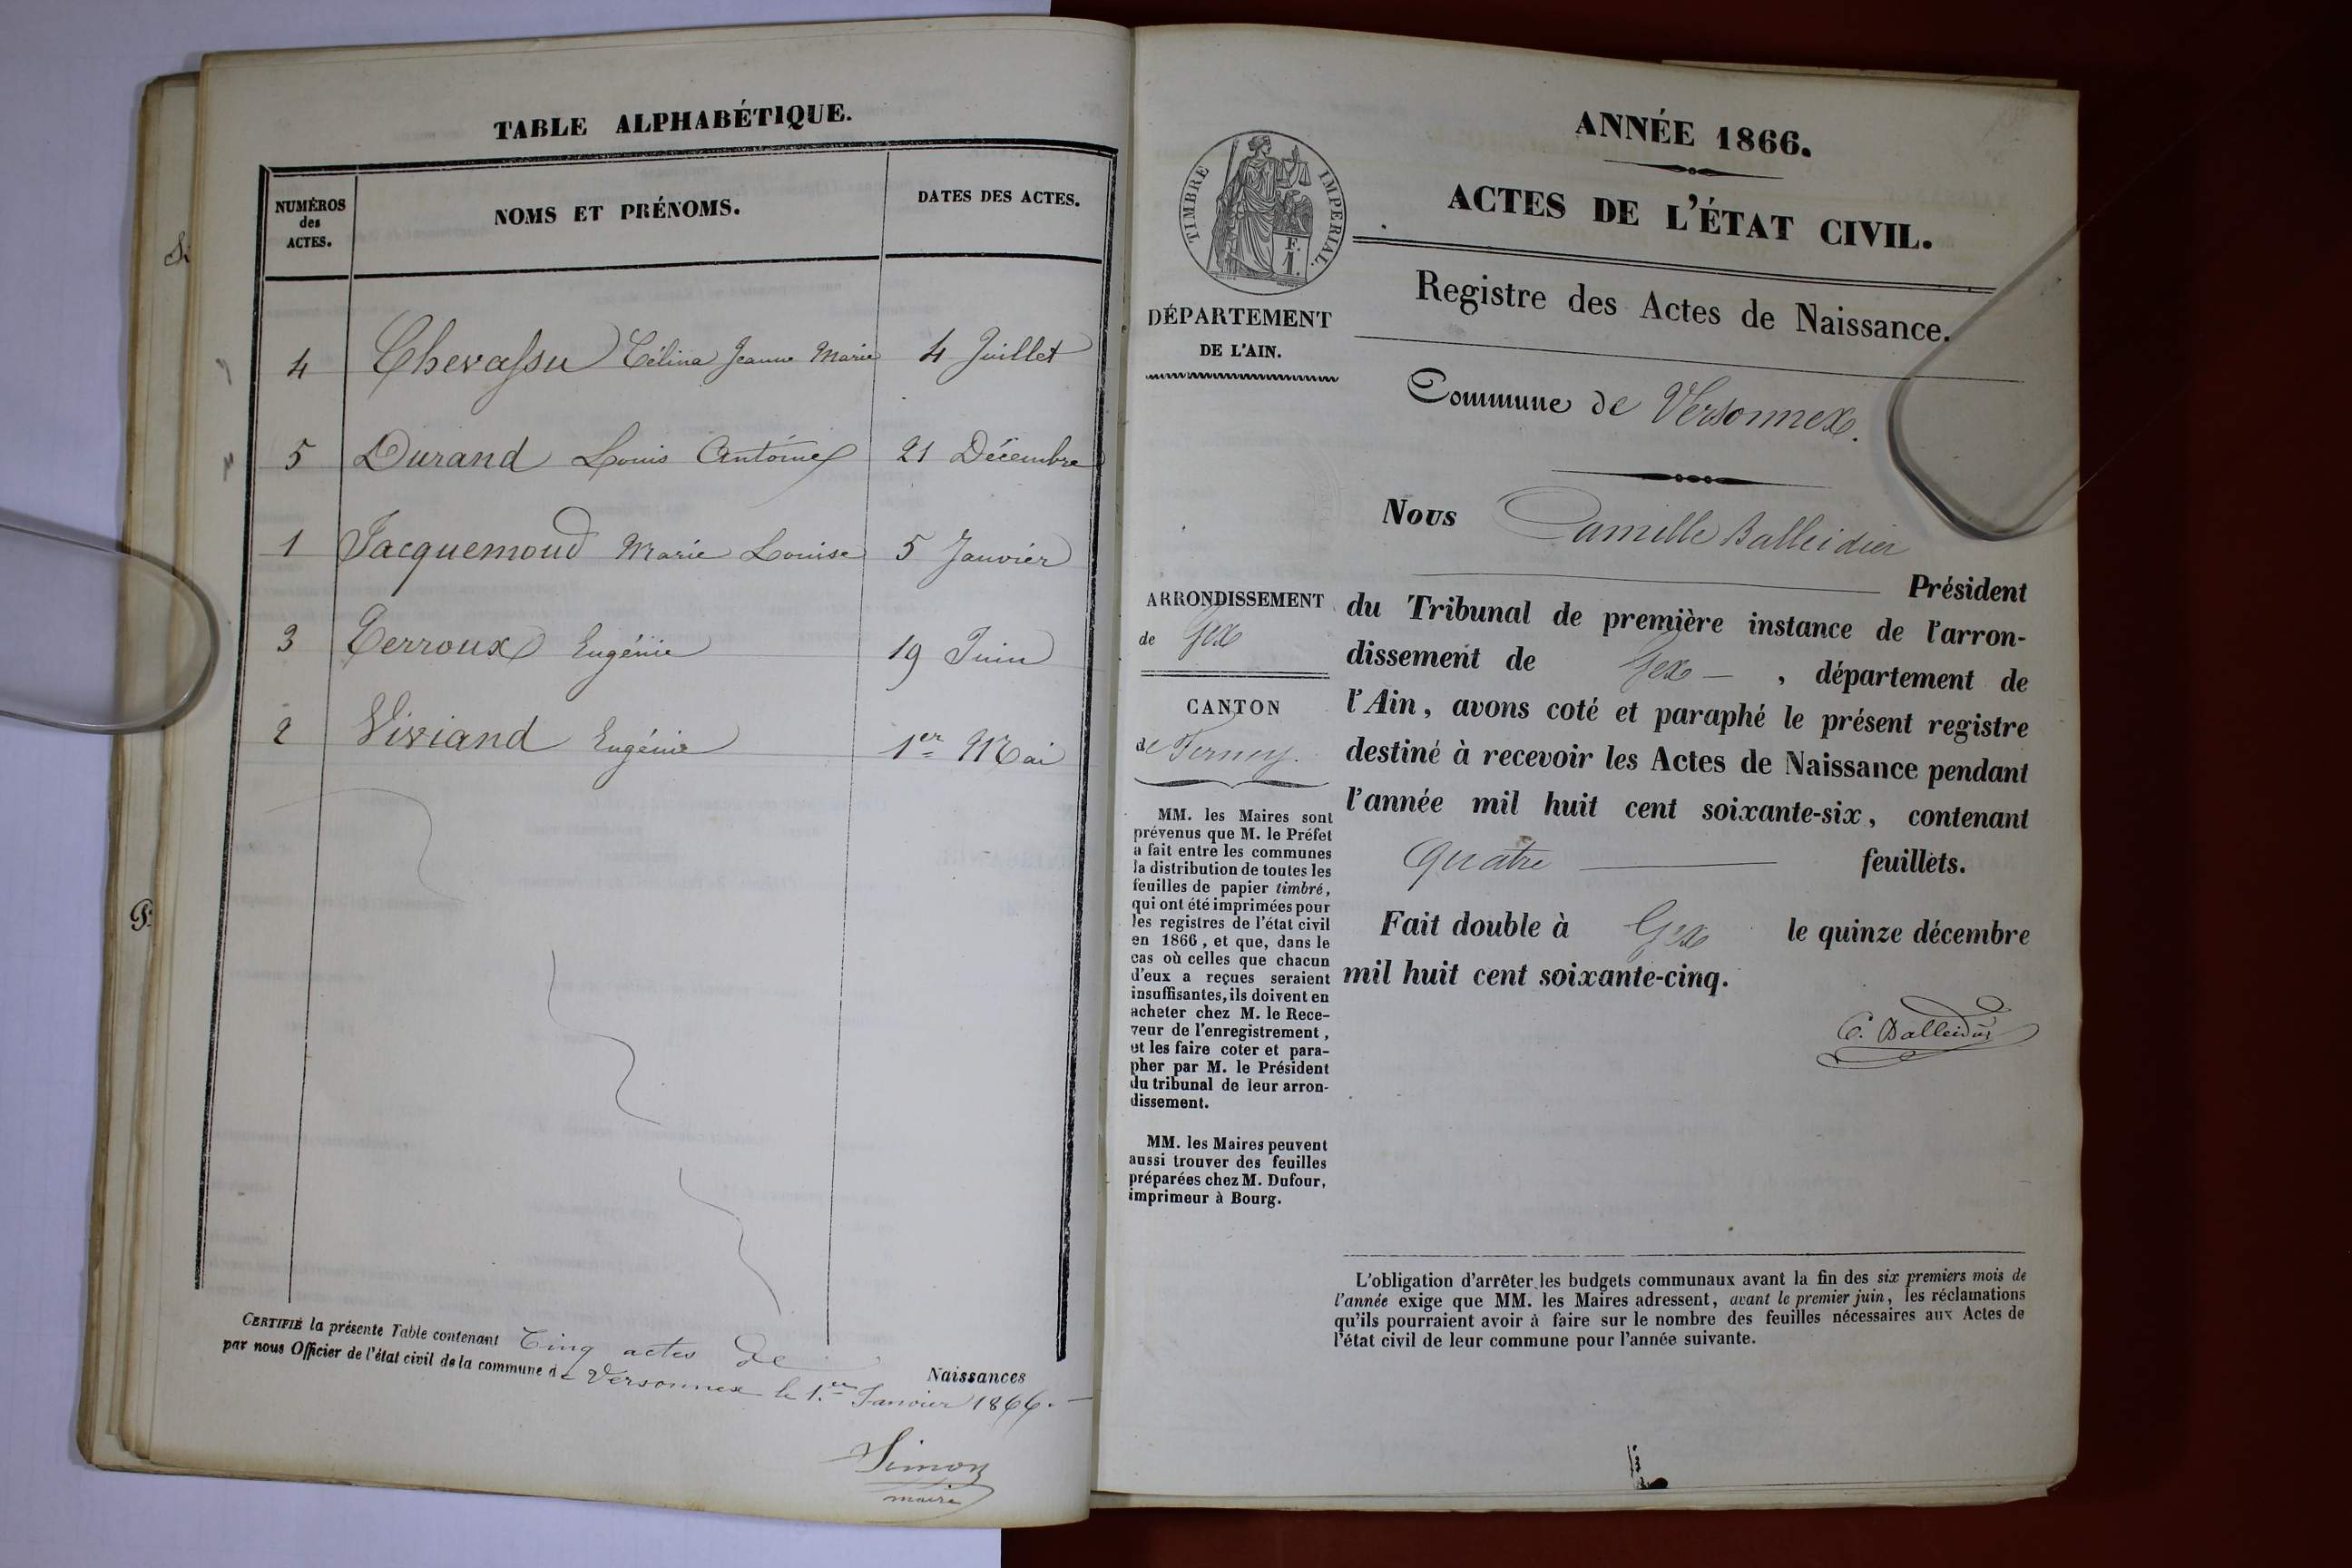 TABLE ALPHABÉTIQUE.
NUMÉROS
des
ACTES.
NOMS ET PRÉNOMS.
DATES DES ACTES.
4 Chevassu Célina Jeanne Marie 4 Juillet
5 Durand Louis Antoine 21 Décembre
1 Jacquemoud Marie Louise 5 Janvier
3 Terroux Eugénie 19 Juin
2 Viviand Eugénie 1er Mai
CERTIFIÉ la présente Table contenant Cinq actes de Naissances
par nous Officier de l'état civil de la commune de Versonnex le 1.er Janvier 1866.
Simon
maire
TIMBRE IMPERIAL.
F.
1.
DÉPARTEMENT
DE L'AIN.
ARRONDISSEMENT
de Gex
CANTON
de Ferney.
MM. les Maires sont
prévenus que M. le Préfet
a fait entre les communes
la distribution de toutes les
feuilles de papier timbré,
qui ont été imprimées pour
les registres de l'état civil
en 1866, et que, dans le
cas où celles que chacun
d'eux a reçues seraient
insuffisantes, ils doivent en
acheter chez M. le Rece-
veur de l'enregistrement,
et les faire coter et para-
pher par M. le Président
du tribunal de leur arron-
dissement.
MM. les Maires peuvent
aussi trouver des feuilles
préparées chez M. Dufour,
imprimeur à Bourg.
ANNÉE 1866.
ACTES DE L'ÉTAT CIVIL.
Registre des Actes de Naissance.
Commune de Versonnex.
Nous Camille Balleidier
Président
du Tribunal de première instance de l'arron-
dissement de Gex — , département de
l'Ain, avons coté et paraphé le présent registre
destiné à recevoir les Actes de Naissance pendant
l'année mil huit cent soixante-six, contenant
quatre — feuillets.
Fait double à Gex le quinze décembre
mil huit cent soixante-cinq.
C. Balleidier
L'obligation d'arrêter les budgets communaux avant la fin des six premiers mois de
l'année exige que MM. les Maires adressent, avant le premier juin, les réclamations
qu'ils pourraient avoir à faire sur le nombre des feuilles nécessaires aux Actes de
l'état civil de leur commune pour l'année suivante.